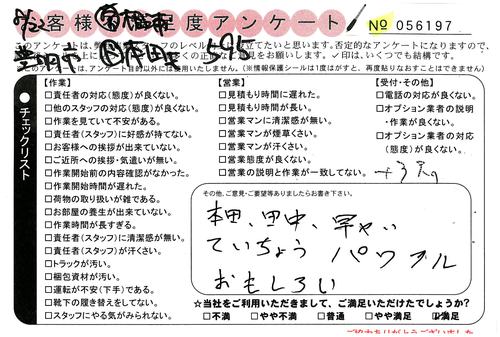 お客様満足度アンケート
No 056197
このアンケートは、
ご意見をお願いします。✓印は、いくつでも結構です。
アンケート目的以外には使用いたしません。(※情報保護シールは1度はがすと、再度貼りなおすことはできません)
●チェックリスト
【作業】
□責任者の対応(態度)が良くない。
□他のスタッフの対応(態度)が良くない。
□作業を見ていて不安がある。
□責任者(スタッフ)に好感が持てない。
□お客様への挨拶が出来ていない。
□ご近所への挨拶・気遣いが無い。
□作業開始前の内容確認がなかった。
□作業開始時間が遅れた。
□荷物の取り扱いが雑である。
□お部屋の養生が出来ていない。
□作業時間が長すぎる。
□責任者(スタッフ)に清潔感が無い。
□責任者(スタッフ)が汗くさい。
□トラックが汚い。
□梱包資材が汚い。
□運転が不安(下手)である。
□靴下の履き替えをしてない。
□スタッフにやる気がみられない。
【営業】
□見積もり時間に遅れた。
□見積もり時間が長い。
□営業マンに清潔感が無い。
□営業マンが煙草くさい。
□営業マンが汗くさい。
□営業態度が良くない。
□営業の説明と作業が一致してない。
【受付・その他】
□電話の対応が良くない。
□オプション業者の説明
・作業が良くない。
□オプション業者の対応
(態度)が良くない。
その他、ご意見・ご要望等ありましたらお書き下さい。
本田、田中、早い
ていちょう パワフル
おもしろい
☆当社をご利用いただきまして、ご満足いただけたでしょうか?
□不満 □やや不満 □普通 □やや満足 ☑満足
ご協力ありがとうございました